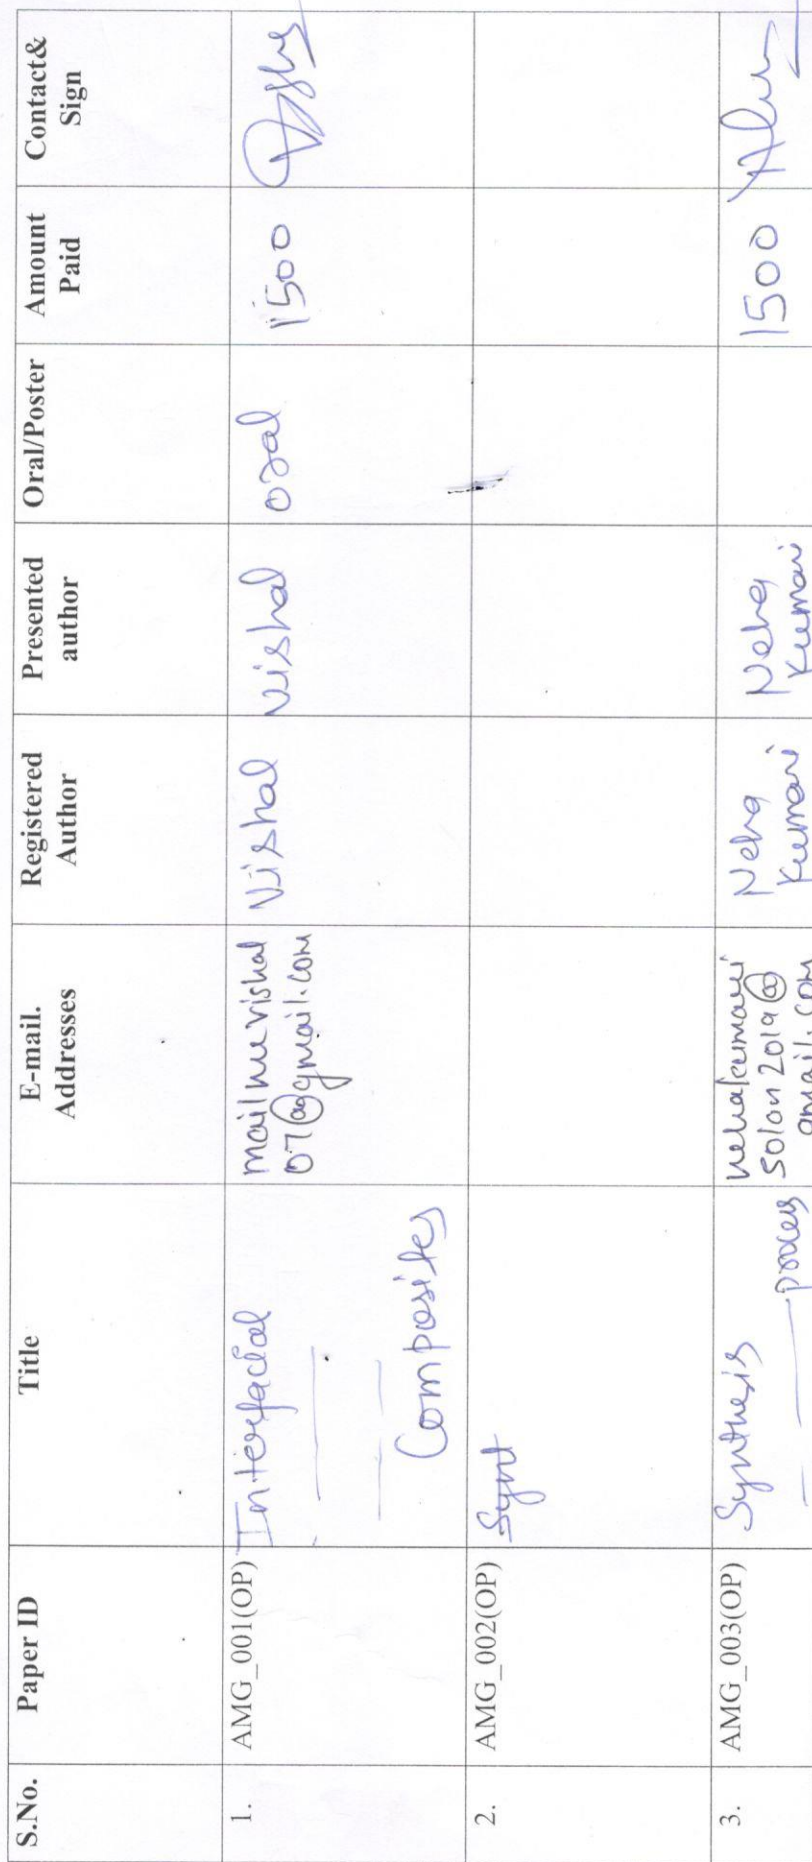 S.No.
Paper ID
Title
E-mail.
Addresses
Registered
Author
Presented
author
Oral/Poster
Amount
Paid
Contact&
Sign
1.
AMG_001(OP)
Interfacial
Composites
mailmevishal
07@gmail.com
Vishal
Vishal
oral
1500
2.
AMG_002(OP)
Synt
3.
AMG_003(OP)
Synthesis
process
nehakumari
solan2019@
gmail.com
Neha
Kumari
Neha
Kumari
1500